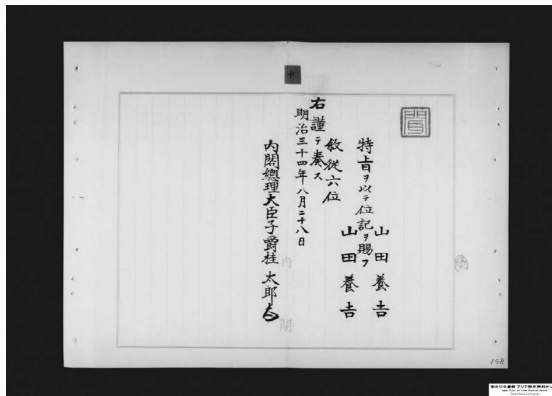 聞
山田養吉
特旨ヲ以テ位記ヲ賜フ
山田養吉
叙従六位
右謹テ奏ス
明治三十四年八月二十八日
内閣總理大臣子爵桂太郎
内閣
158